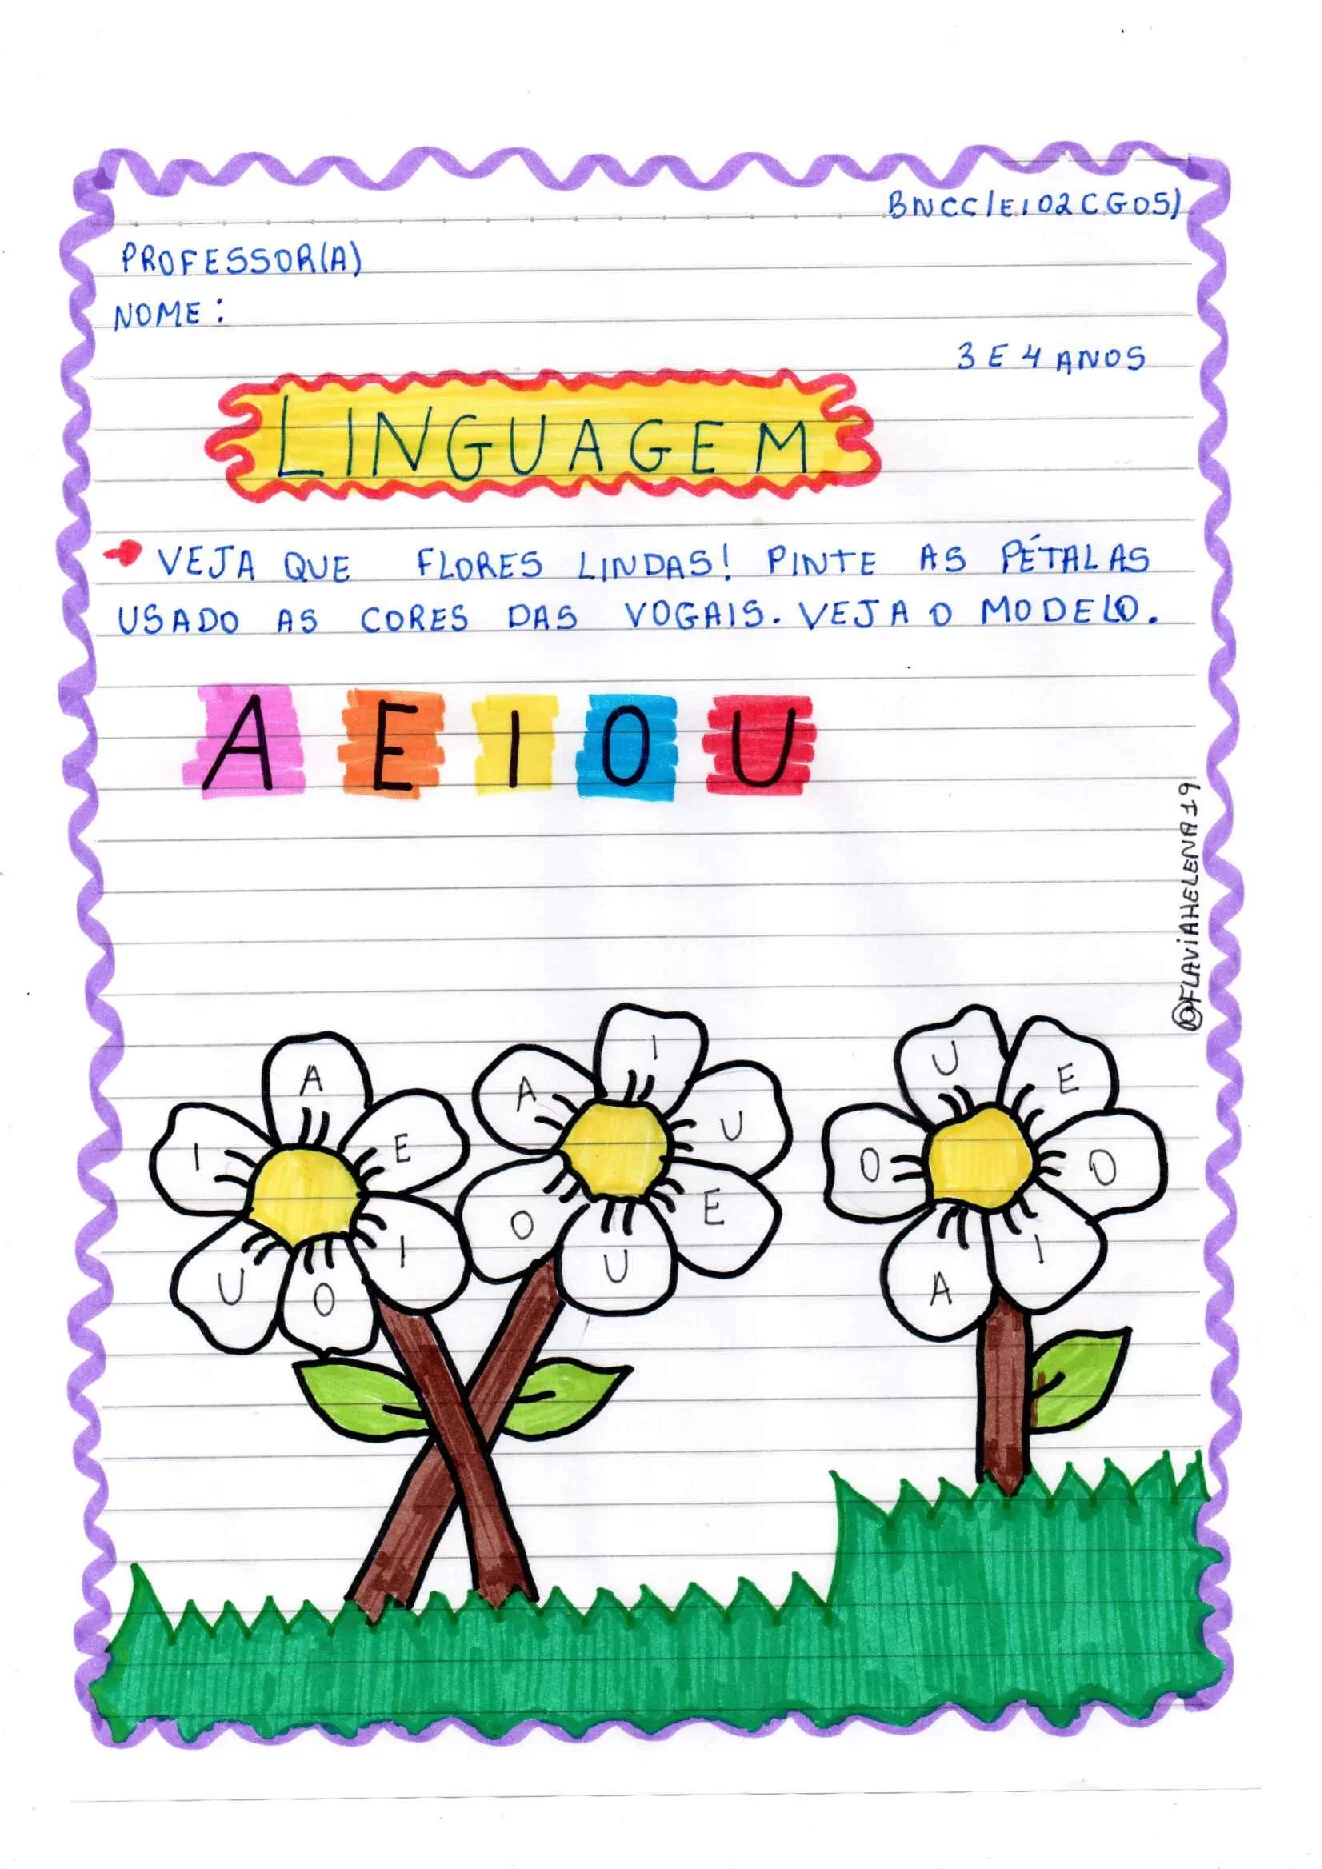 BNCC/EI02CG05)
PROFESSOR(A)
NOME:
3 E 4 ANOS
LINGUAGEM
VEJA QUE FLORES LINDAS! PINTE AS PÉTALAS
USADO AS CORES DAS VOGAIS. VEJA O MODELO.
A E I O U
@FLAVIAHELENA19
A
E
I
O
U
I
I
U
E
U
O
A
U
E
O
I
A
O